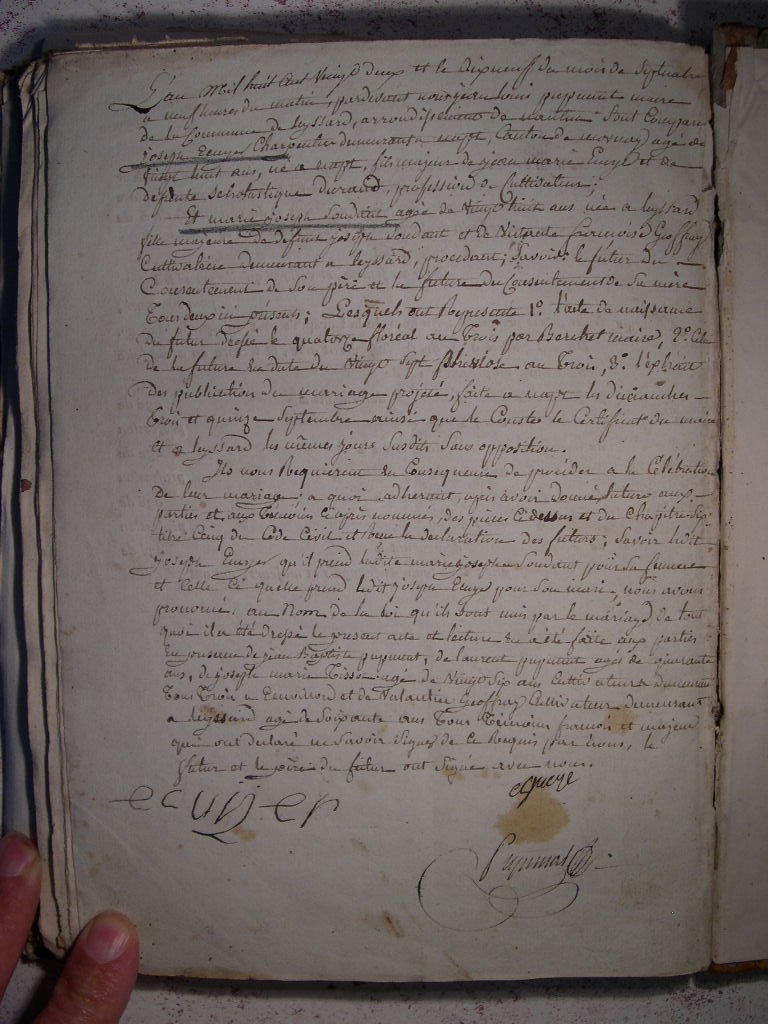 L'an Mil huit cent Vingt deux et le dixneuf du mois de Septembre
a neuf heures du matin, pardevant nous jean louis pupunat maire
de la Commune de leyssard, arrondissement de nantua Sont Comparu
joseph Ecuyer Charpentier demeurant a napt, Canton de mornay agé de
Vingt huit ans, né a napt, fils majeur de jean marie Ecuyer et de
defunte Scholastique Durand, profession de Cultivateur;
Et marie joseph Soudant agée de Vingt huit ans née a leyssard
fille majeure de defunt joseph Soudant et de Vivante francoise Geoffray
Cultivatrice demeurant a leyssard, procedant; Savoir le futur du
Consentement de Son père et la future du Consentement de Sa mère
Tous deux ici présents; Lesquels ont Représenté 1º. l'acte de naissance
du futur dressé le quatorze floréal an Trois par Berchet maire, 2º. Celui
de la future en date du Vingt Sept pluviose an Trois, 3º. l'extrait
des publication du mariage projeté, faite a napt les dimanches
Trois et quinze Septembre ainsi que le Conste le Certificat du maire
et a leyssard les mêmes jours Susdits Sans opposition.
Ils nous Requièrent en Consequence de procéder a la Célébration
de leur mariage; a quoi adherant, après avoir donné lecture aux
parties et aux Témoins Ci après nommés, des pièces Cidessus et du Chapitre Six
titre Cinq du Code Civil et Recu la declaration des futurs; Savoir ledit
joseph Ecuyer qu'il prend ladite marie joseph Soudant pour Sa femme
et Celle Ci quelle prend ledit joseph Ecuyer pour Son mari, nous avons
prononcé: au Nom de la Loi qu'ils Sont unis par le mariage de tout
quoi il a été dressé le present acte et lecture en a été faite aux parties
en presence de jean Baptiste pupunat, de laurent pupunat agés de quarante
ans, de joseph marie Tissot agé de Vingt Six ans Cultivateurs demeurant
Tous Trois a et de Valantin Geoffray Cultivateur demeurant
a leyssard agé de Soixante ans Tous Témoins francois et majeur
qui ont declaré ne Savoir Signer de Ce Requis par nous, le
futur et le père du futur ont Signé avec nous.
ecuyer
ecuyer
Pupunat